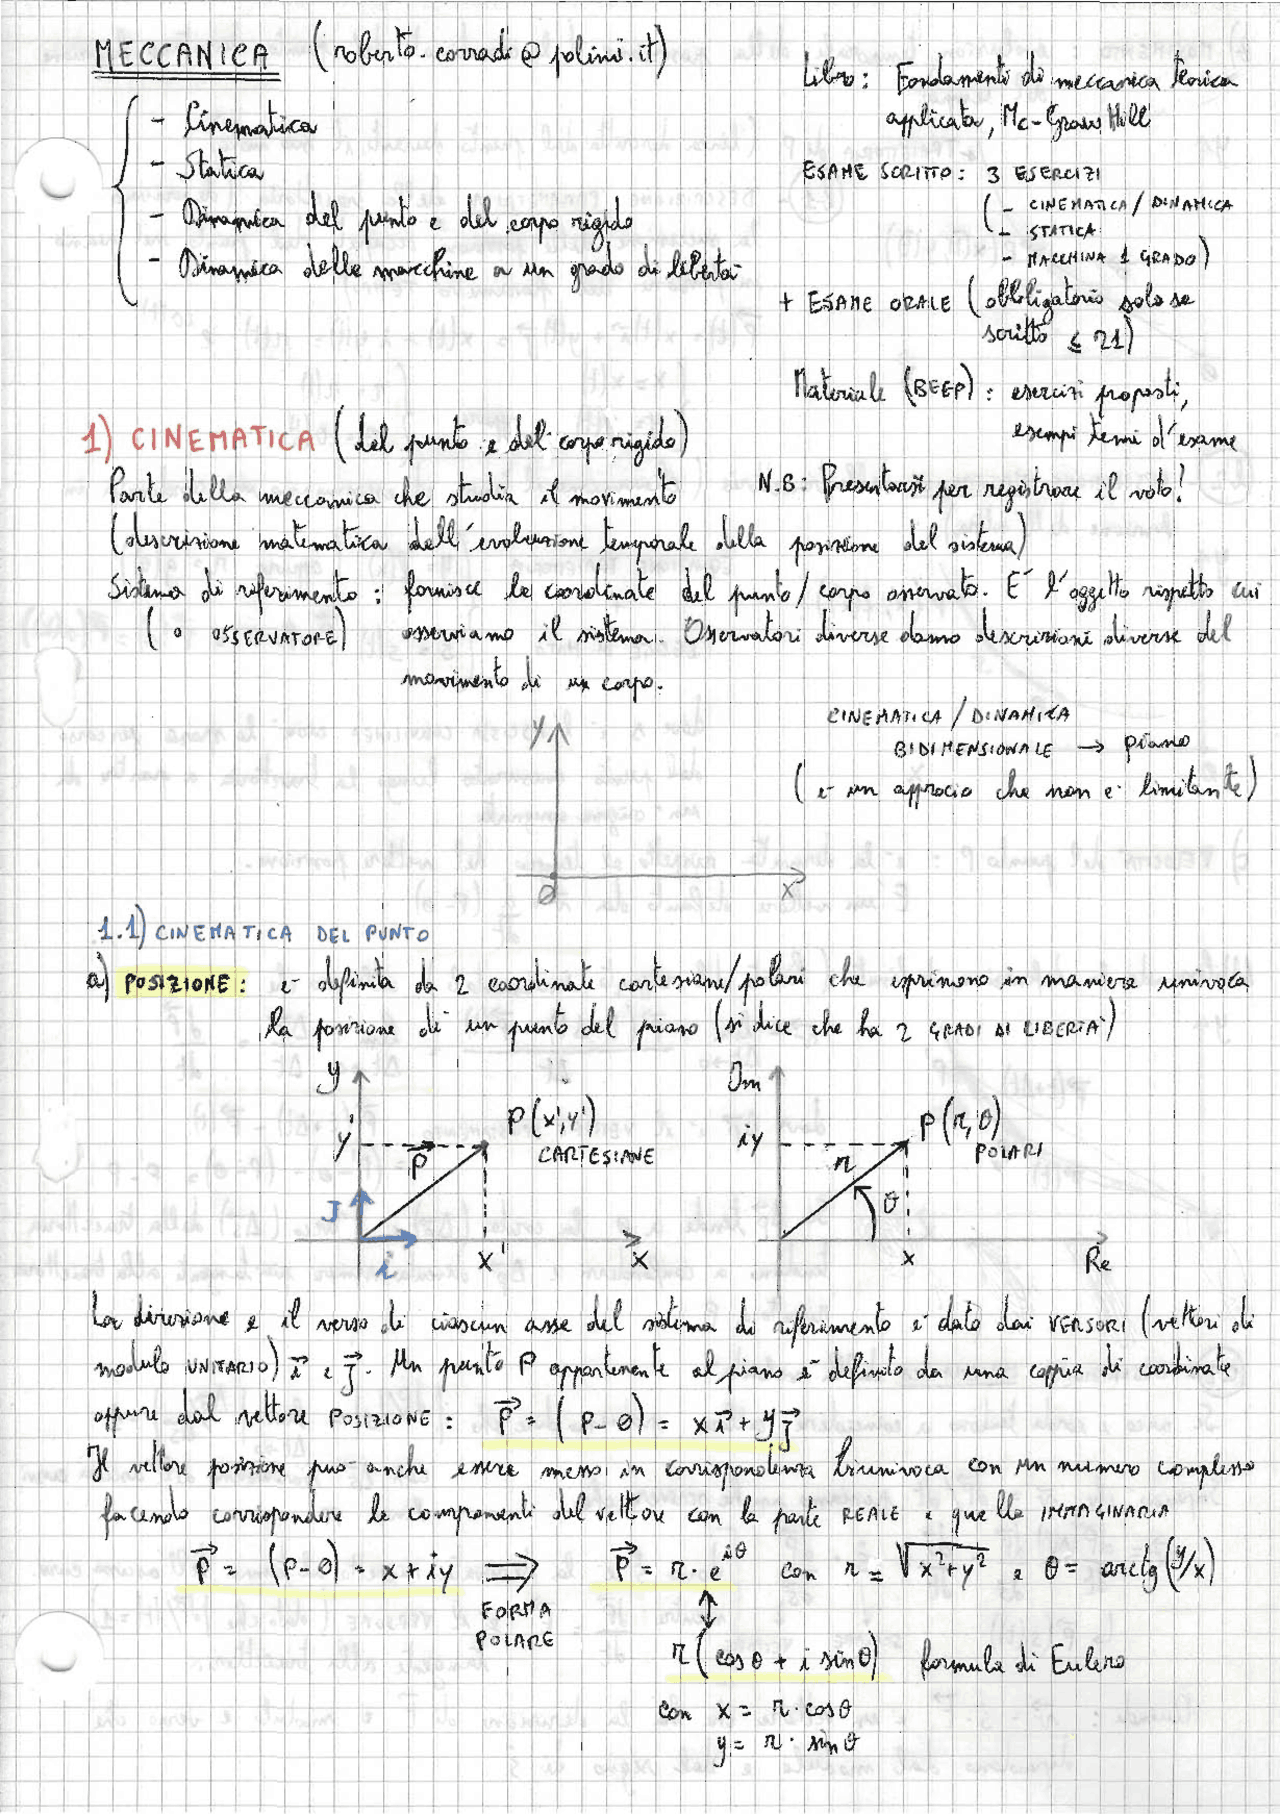 MECCANICA (roberto.corradi@polimi.it)
- Cinematica
- Statica
- Dinamica del punto e del corpo rigido
- Dinamica delle macchine a un grado di libertà
Libro: Fondamenti di meccanica teorica
applicata, Mc-Graw Hill
ESAME SCRITTO: 3 ESERCIZI
(- CINEMATICA/DINAMICA
- STATICA
- MACCHINA 1 GRADO)
+ ESAME ORALE (obbligatorio solo se
scritto ≤ 21)
Materiale (BEEP): esercizi proposti,
esempi temi d'esame
N.B: Presentarsi per registrare il voto!
1) CINEMATICA (del punto e del corpo rigido)
Parte della meccanica che studia il movimento
(descrizione matematica dell'evoluzione temporale della posizione del sistema)
Sistema di riferimento: fornisce le coordinate del punto/corpo osservato. E' l'oggetto rispetto cui
(o OSSERVATORE) osserviamo il sistema. Osservatori diverse danno descrizioni diverse del
movimento di un corpo.
CINEMATICA/DINAMICA
BIDIMENSIONALE → piano
(è un approccio che non è limitante)
y
O x
1.1) CINEMATICA DEL PUNTO
a) POSIZIONE: è definita da 2 coordinate cartesiane/polari che esprimono in maniera univoca
la posizione di un punto del piano (si dice che ha 2 GRADI DI LIBERTA')
y
y' P(x',y')
CARTESIANE
P
J
i x' x
Im
iy P(r,θ)
POLARI
r
θ
x Re
La direzione e il verso di ciascun asse del sistema di riferimento è dato dai VERSORI (vettori di
modulo UNITARIO) i⃗ e j⃗. Un punto P appartenente al piano è definito da una coppia di coordinate
oppure dal vettore POSIZIONE: P⃗ = (P-O) = x i⃗ + y j⃗
Il vettore posizione può anche essere messo in corrispondenza biunivoca con un numero complesso
facendo corrispondere le componenti del vettore con la parte REALE e quella IMMAGINARIA
P⃗ = (P-O) = x + iy ⇒ P⃗ = r · e^{iθ} con r = √(x²+y²) e θ = arctg(y/x)
FORMA
POLARE
↕
r (cosθ + i sinθ) formula di Eulero
con x = r · cosθ
y = r · sinθ